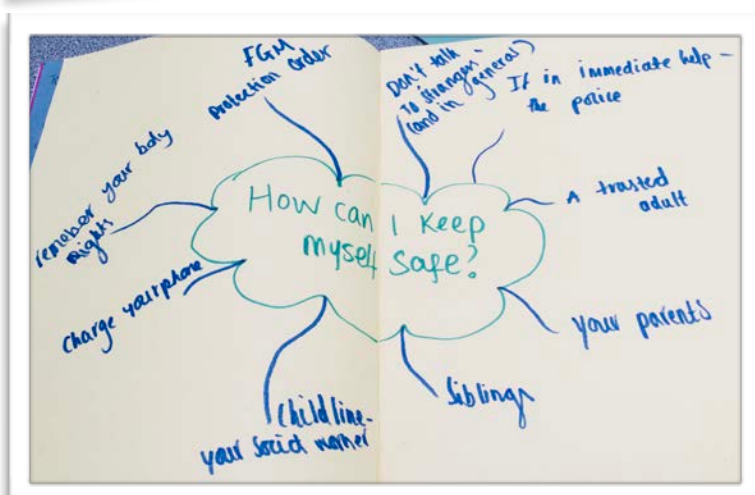 How can I Keep
myself safe?
FGM
protection order
Don't talk
to strangers -
(and in general)
If in immediate help -
the police
A trusted
adult
your parents
Siblings
Childline -
your social worker
Charge your phone
remeber your body
rights